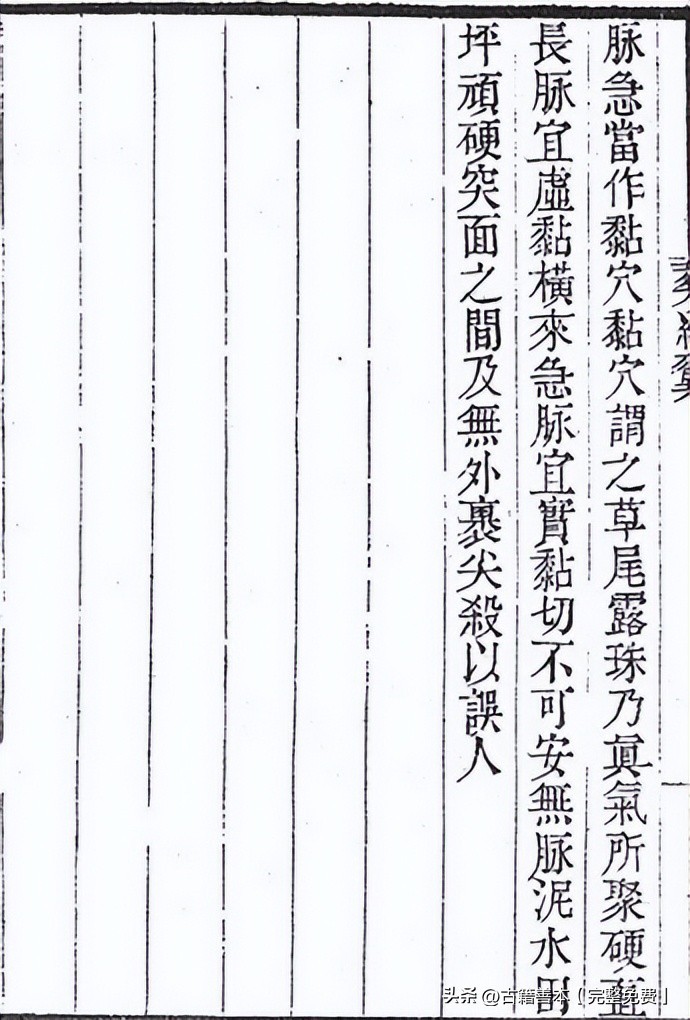 葬經翼
脉急當作黏穴黏穴謂之草尾露珠乃眞氣所聚硬直
長脉宜虛黏橫來急脉宜實黏切不可安無脉泥水田
坪頑硬突面之間及無外裹尖殺以誤人
头条 @古籍善本（完整免费）